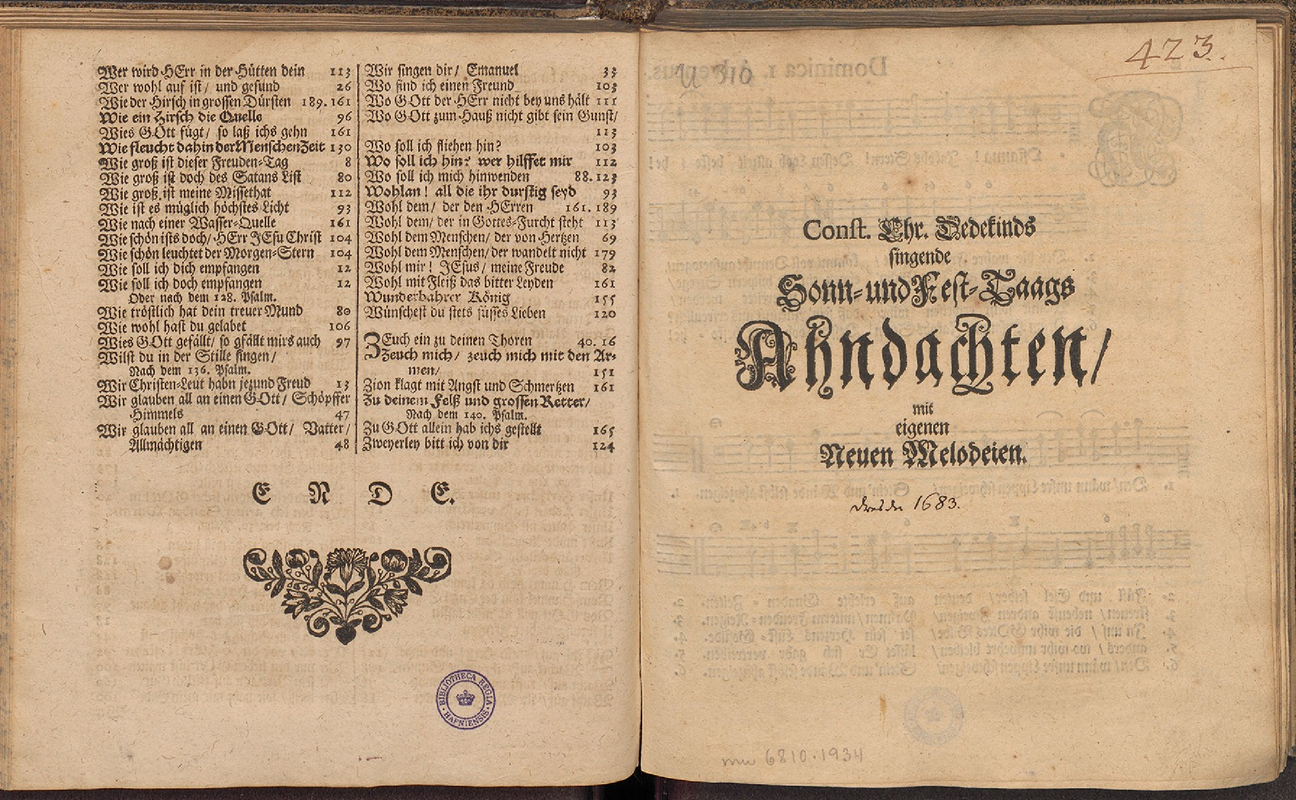 Wer wird HErr in der Hütten dein 113
Wer wohl auf ist/ und gesund 26
Wie der Hirsch in grossen Dürsten 189.161
Wie ein Hirsch die Quelle 96
Wies GOtt fügt/ so laß ichs gehn 161
Wie fleucht dahin der Menschen Zeit 130
Wie groß ist dieser Freuden-Tag 8
Wie groß ist doch des Satans List 80
Wie groß ist meine Missethat 112
Wie ist es müglich höchstes Licht 93
Wie nach einer Wasser-Quelle 161
Wie schön ists doch/ HErr JEsu Christ 104
Wie schön leuchtet der Morgen-Stern 104
Wie soll ich dich empfangen 12
Wie soll ich doch empfangen 12
Oder nach dem 128. Psalm.
Wie tröstlich hat dein treuer Mund 80
Wie wohl hast du gelabet 106
Wies GOtt gefällt/ so gfällt mirs auch 97
Wilst du in der Stille singen/
Nach dem 136. Psalm.
Wir Christen-Leut habn jezund Freud 13
Wir glauben all an einen GOtt/ Schöpffer
Himmels 47
Wir glauben all an einen GOtt/ Vatter/
Allmächtigen 48
Wir singen dir/ Emanuel 33
Wo find ich einen Freund 103
Wo GOtt der HErr nicht bey uns hält 111
Wo GOtt zum Hauß nicht gibt sein Gunst/
113
Wo soll ich fliehen hin? 103
Wo soll ich hin? wer hilffet mir 112
Wo soll ich mich hinwenden 88.123
Wohlan! all die ihr durstig seyd 93
Wohl dem/ der den HErren 161.189
Wohl dem/ der in Gottes-Furcht steht 113
Wohl dem Menschen/ der von Hertzen 69
Wohl dem Menschen/ der wandelt nicht 179
Wohl mir! JEsus/ meine Freude 82
Wohl mit Fleiß das bitter Leyden 161
Wunderbahrer König 155
Wünschest du stets süsses Lieben 120
ZEuch ein zu deinen Thoren 40.16
Zeuch mich/ zeuch mich mit den Ar-
men/ 151
Zion klagt mit Angst und Schmertzen 161
Zu deinem Felß und grossen Retter/
Nach dem 140. Psalm.
Zu GOtt allein hab ichs gestellt 165
Zweyerley bitt ich von dir 124
E N D E.
BIBLIOTHECA REGIA HAFNIENSIS
423.
U 310
Const. Chr. Dedekinds
singende
Sonn- und Fest-Taags
Ahndachten/
mit
eigenen
Neuen Melodeien.
Dresden 1683.
mu 6810.1934